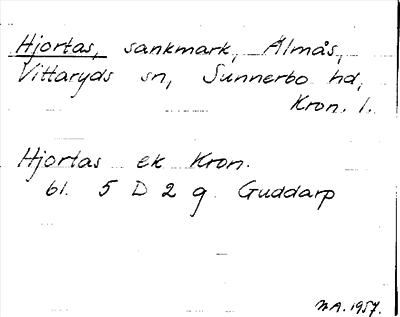 Hjortas, sankmark, Älmås,
Vittaryds sn, Sunnerbo hd,
Kron. l.
Hjortas ek Kron.
bl. 5 D 2 g Guddarp
M.A. 1957.